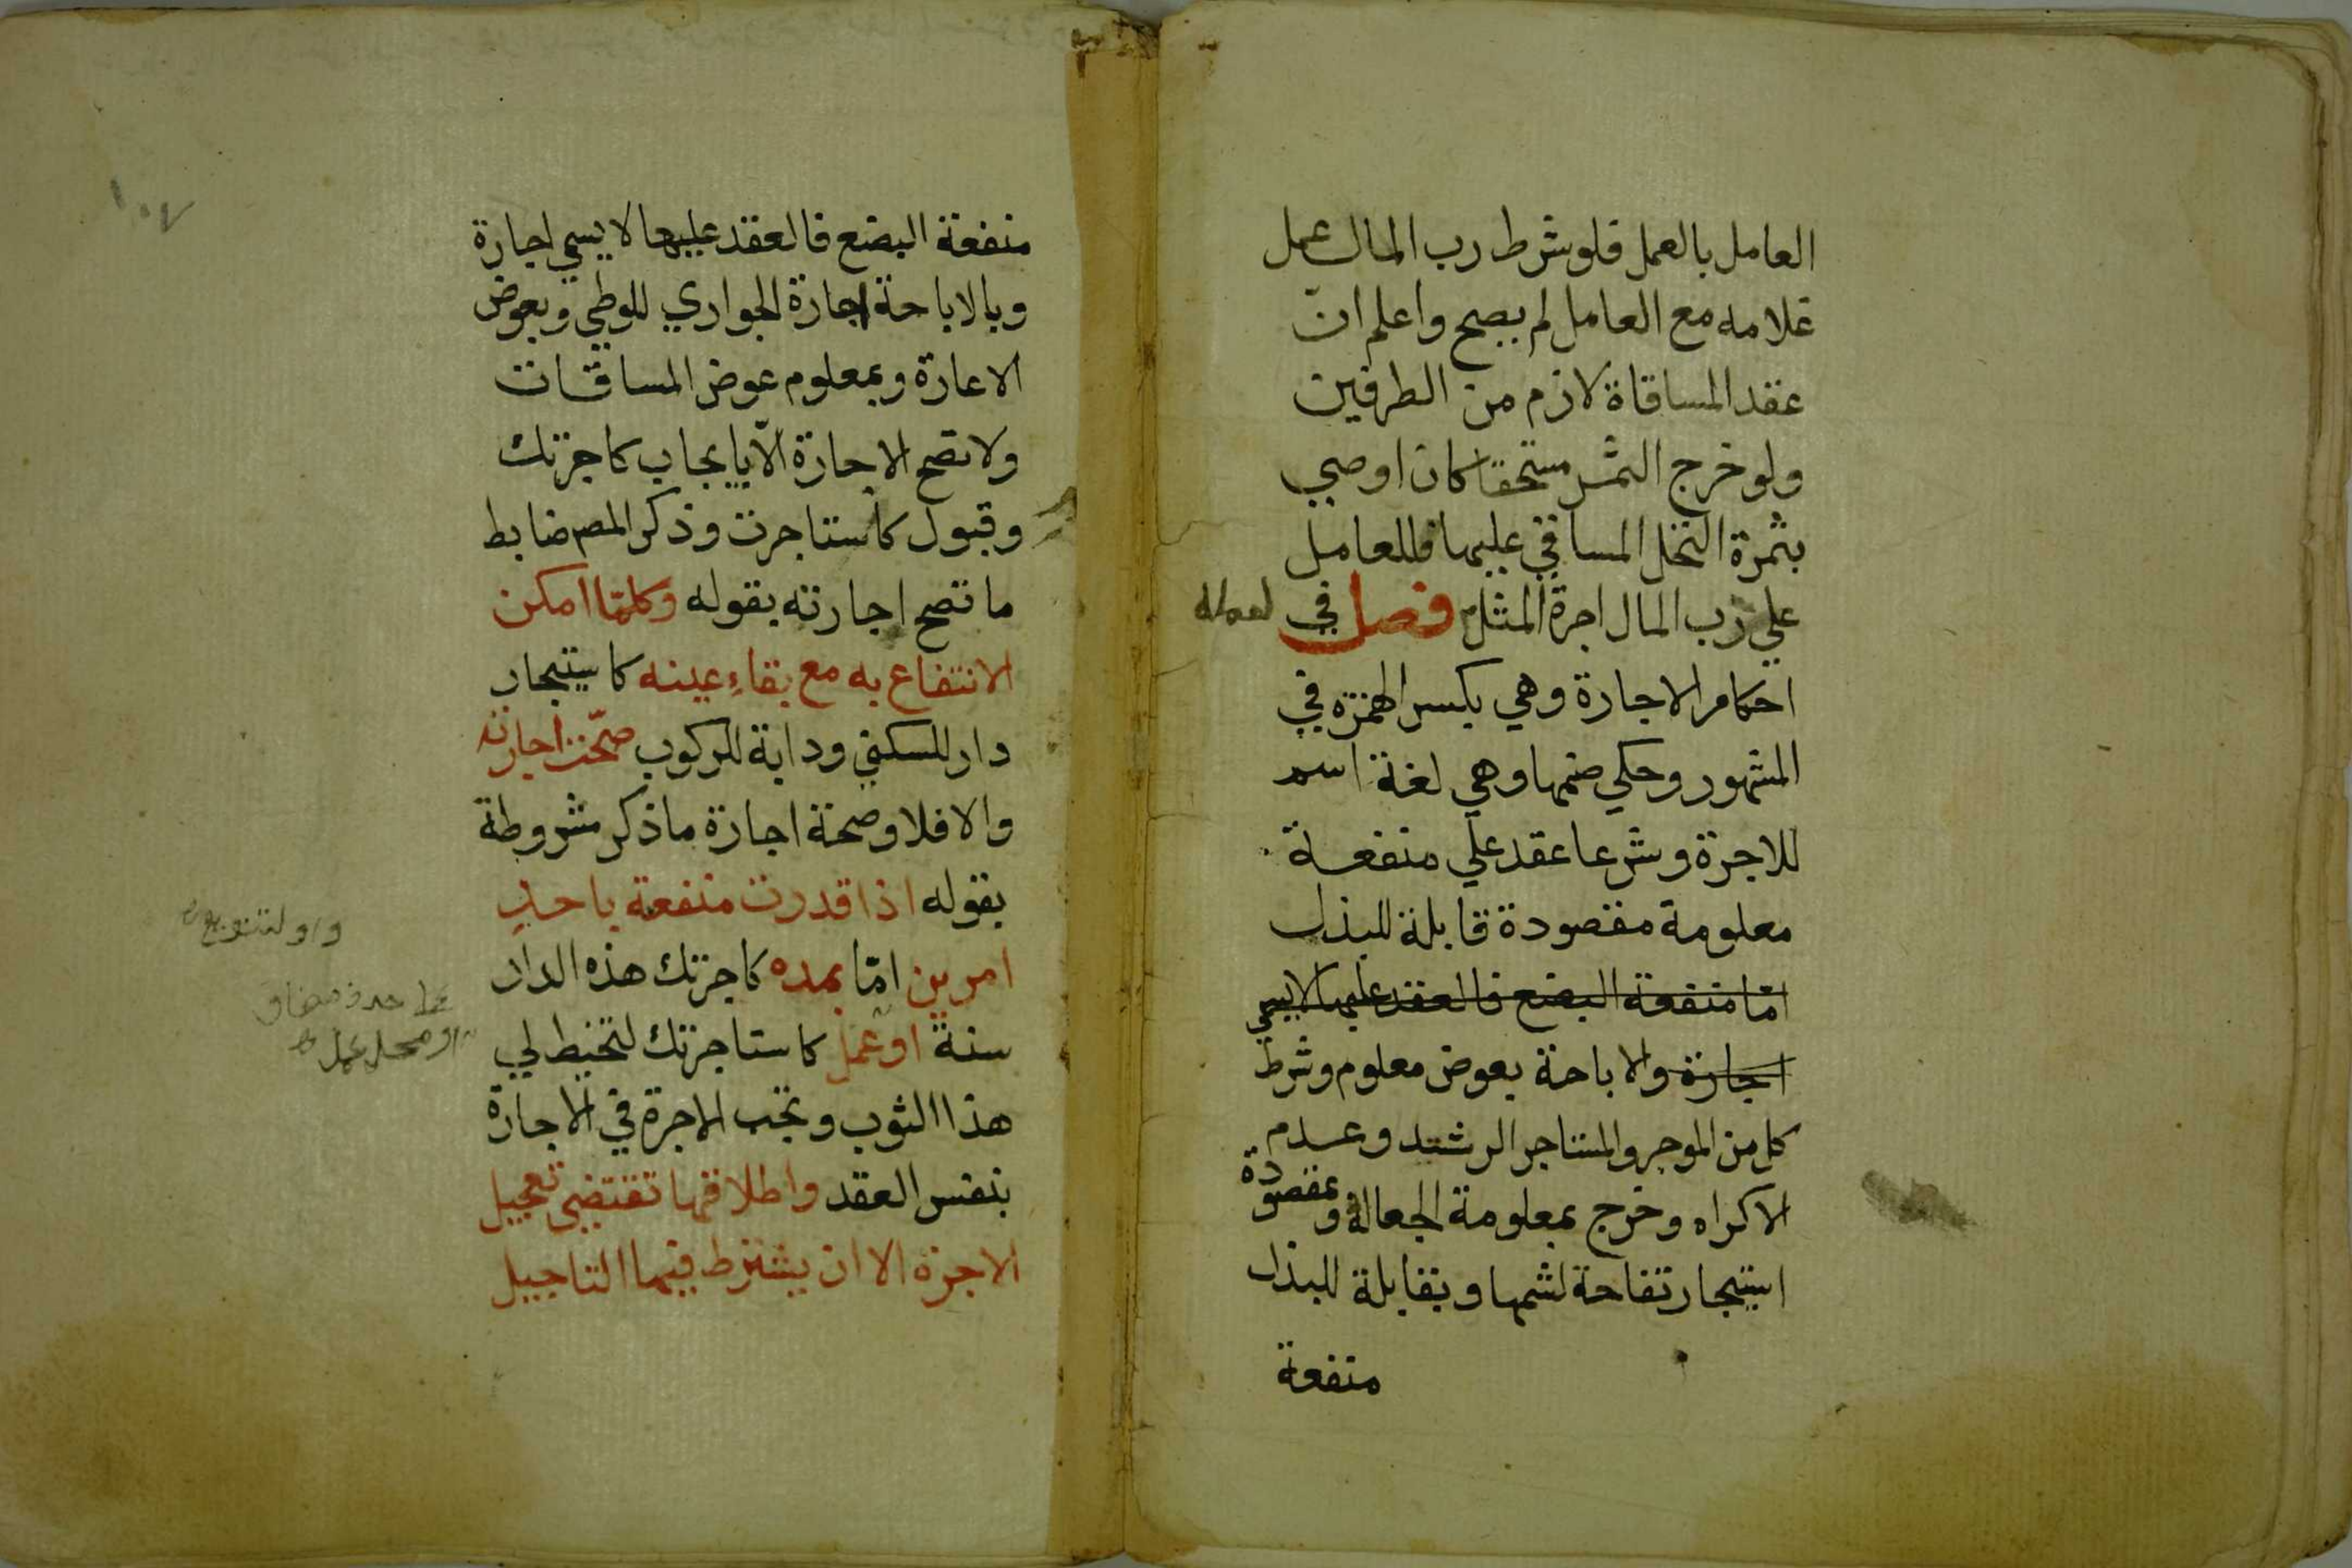 العامل بالعمل فلو شرط رب المال عمل
غلامه مع العامل لم يصح واعلم ان
عقد المساقاة لازم من الطرفين
ولو خرج الثمر مستحقا كان اوصي
بثمرة النخل المساقي عليها فللعامل
علي رب المال اجرة المثل فصل في
لعمله
احكام الاجارة وهي بكسر الهمزه في
المشهور وحكي ضمها وهي لغة اسم
للاجرة وشرعا عقد علي منفعة
معلومة مقصودة قابلة للبذل
امّا منفعة البضع فالعقد عليها لا يسمي
اجارة والاباحة بعوض معلوم وشرط
كل من الموجر والمستاجر الرشد وعدم
الاكراه وخرج بمعلومة الجعالة وبمقصودة
استيجار تفاحة لشمها وبقابلة للبذل
منفعة
١٠٧
منفعة البضع فالعقد عليها لا يسمي اجارة
وبالاباحة اجارة الجواري للوطي وبعوض
الاعارة وبمعلوم عوض المساقات
ولا تصح الاجارة الّا بايجاب كاجرتك
وقبول كاستاجرت وذكر المصـ ضابط
ما تصح اجارته بقوله وكلمّا امكن
الانتفاع به مع بقاء عينه كاستيجار
دار للسكني ودابة للركوب صحّت اجارته
والا فلا وصحة اجارة ما ذكر مشروطة
بقوله اذا قدرت منفعة باحدِ
امرين امّا بمده كاجرتك هذه الدار
سنة او عمل كاستاجرتك لتخيط لي
هذا الثوب وتجب الاجرة في الاجارة
بنفس العقد واطلاقها تقتضي تعجيل
الاجرة الا ان يشترط فيها التاجيل
واو لتنويع
حذف مضاف
او محل عمل